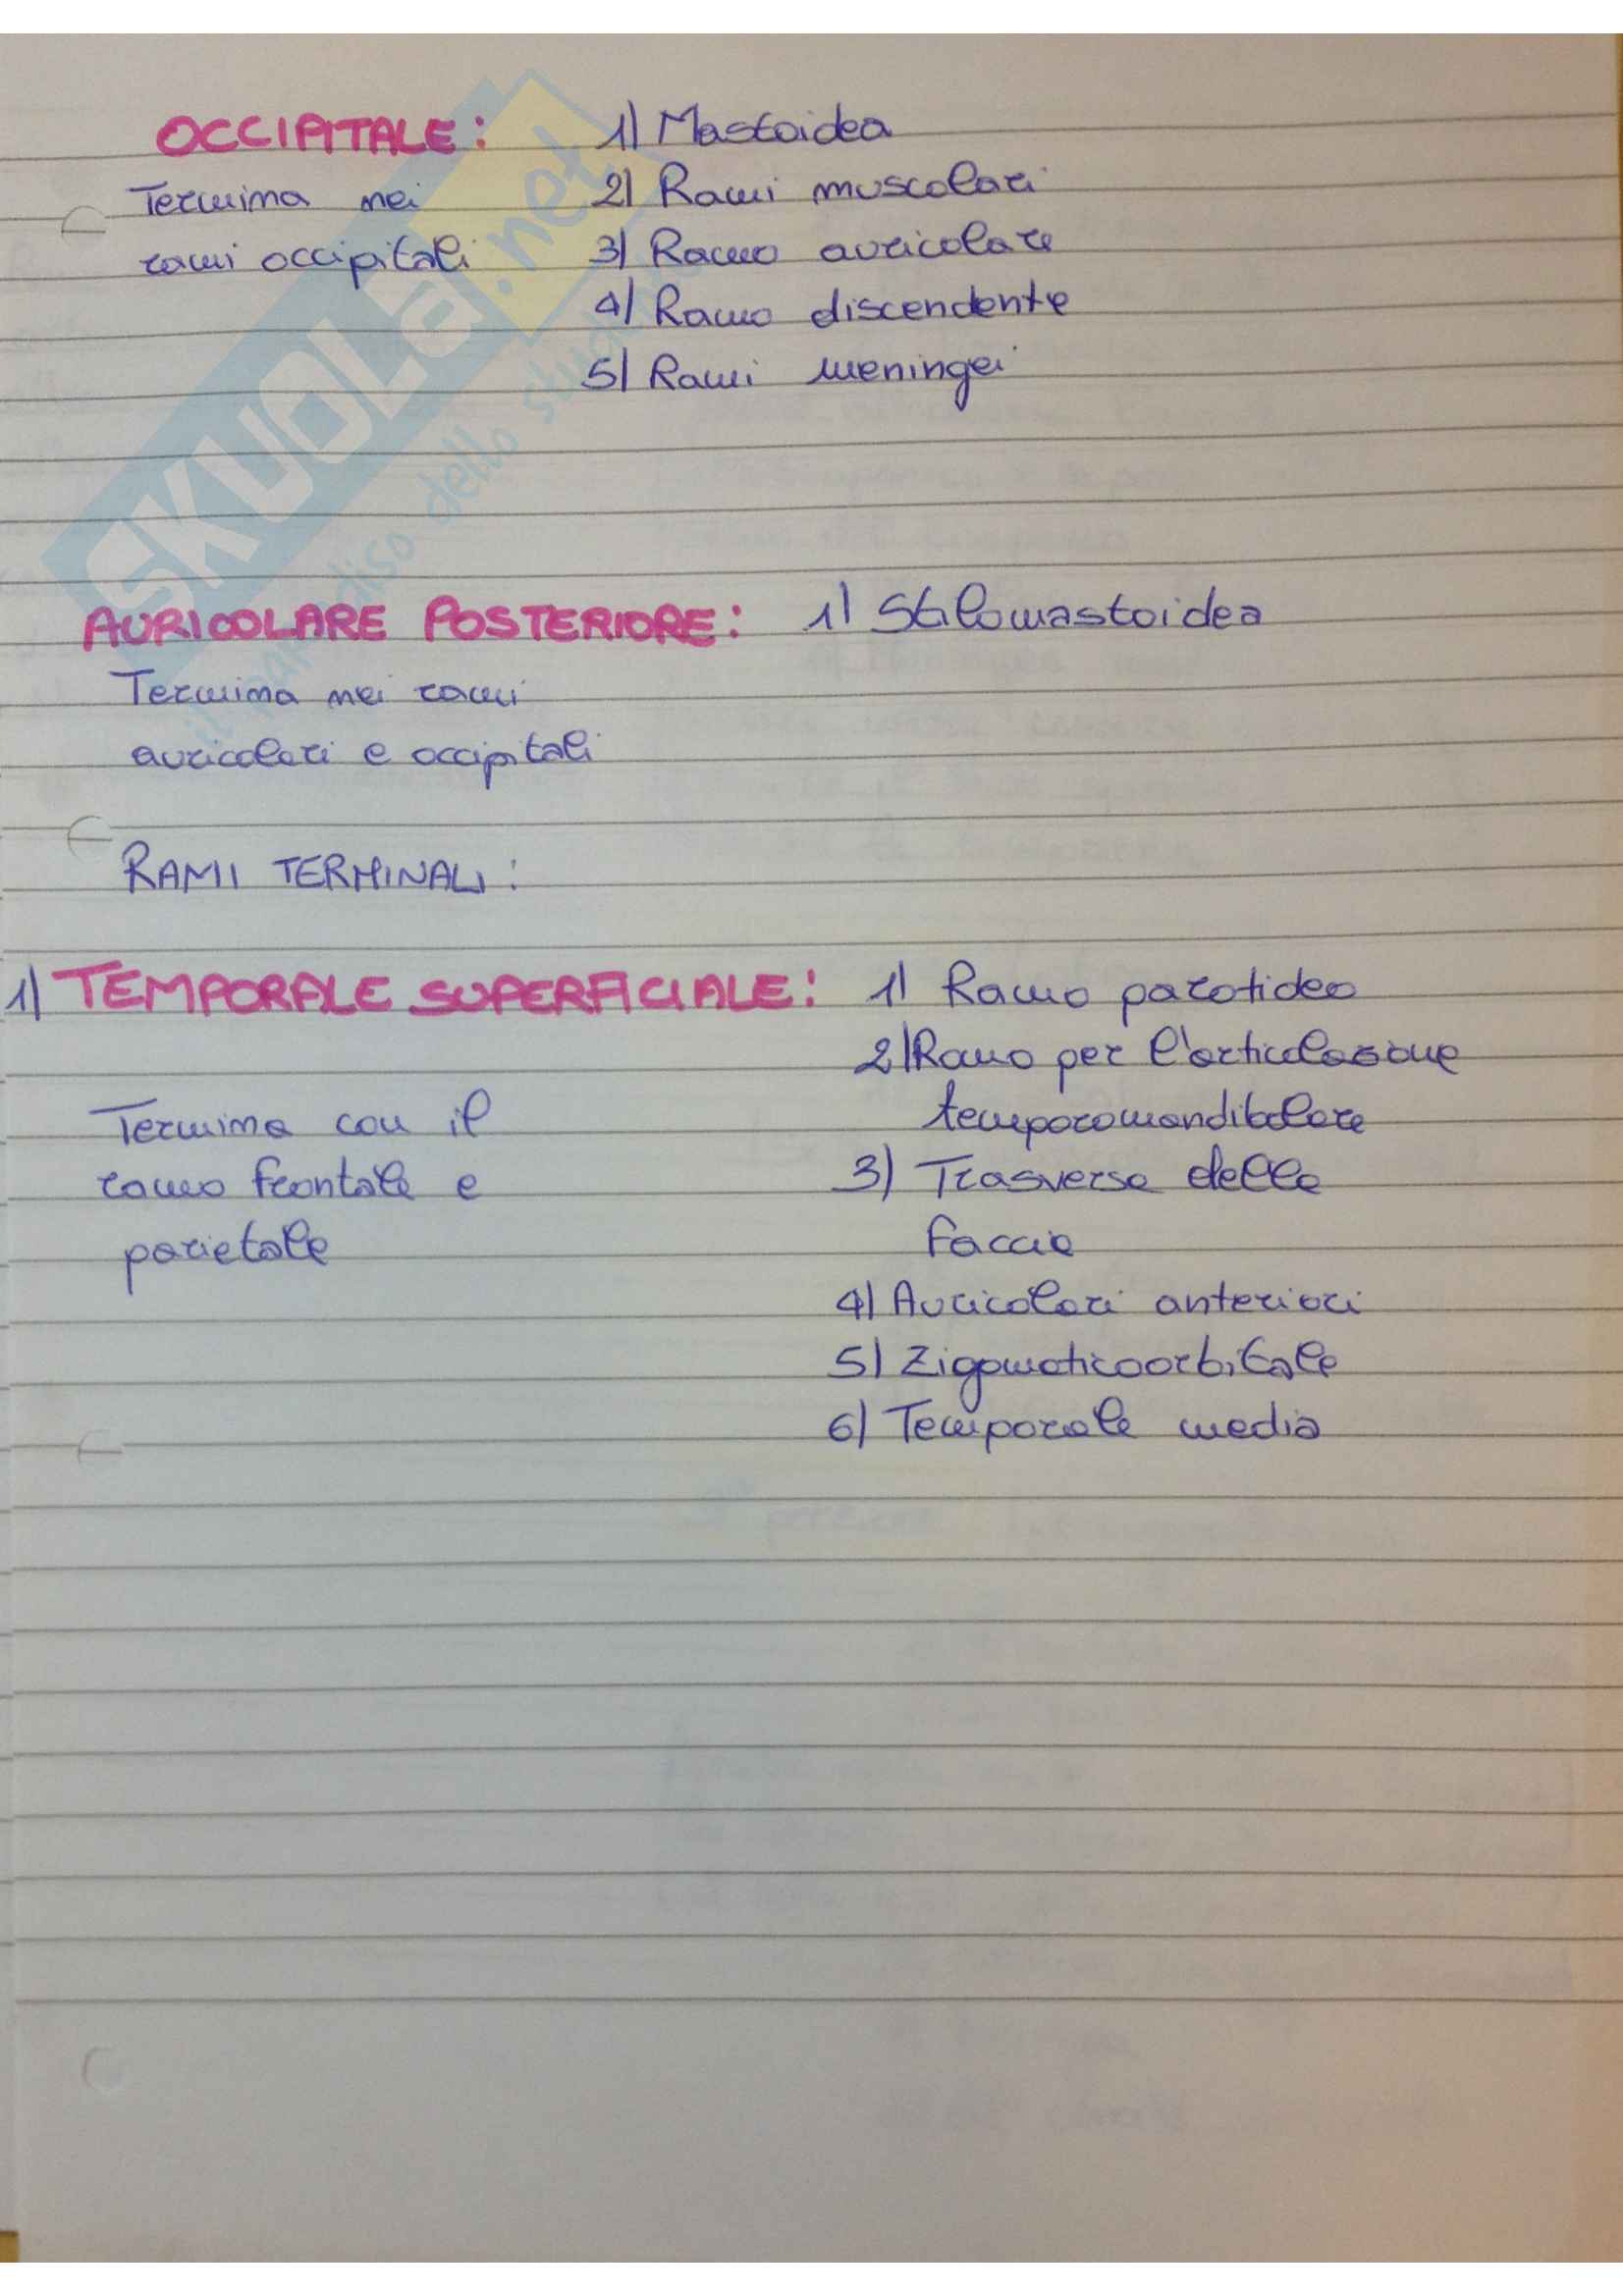 OCCIPITALE: 1) Mastoidea
Termina nei 2) Rami muscolari
rami occipitali 3) Ramo auricolare
4) Ramo discendente
5) Rami meningei
AURICOLARE POSTERIORE: 1) Stilomastoidea
Termina nei rami
auricolari e occipitali
RAMI TERMINALI:
1) TEMPORALE SUPERFICIALE: 1) Ramo parotideo
2) Ramo per l'articolazione
temporomandibolare
Termina con il
ramo frontale e
parietale
3) Trasversa della
faccia
4) Auricolari anteriori
5) Zigomaticoorbitale
6) Temporale media
SKUOLA.net
il paradiso dello studente